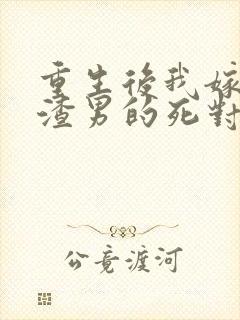 重生後我嫁
渣男的死對
公竟渡河